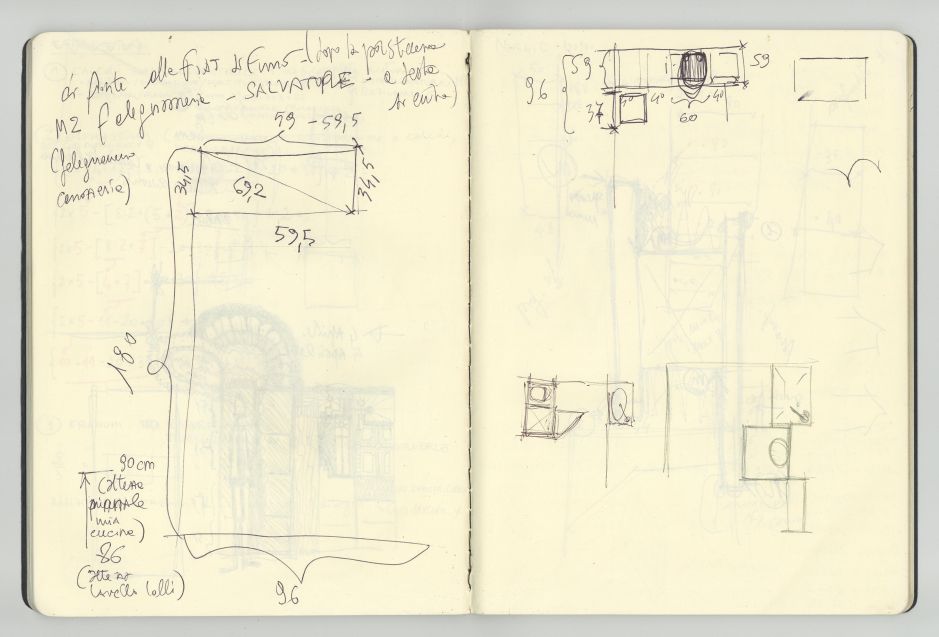 di fronte alla FIAT di Fumo - (dopo la
M2 falegnameria - SALVATORE - a destra
si entra)
(falegnameria
59 - 59,5
34,5
69,2
34,5
59,5
180
90 cm
(altezza
mia
cucina)
86
(altezza
lavello Lolli)
96
59
96
37
40
40
60
40
59